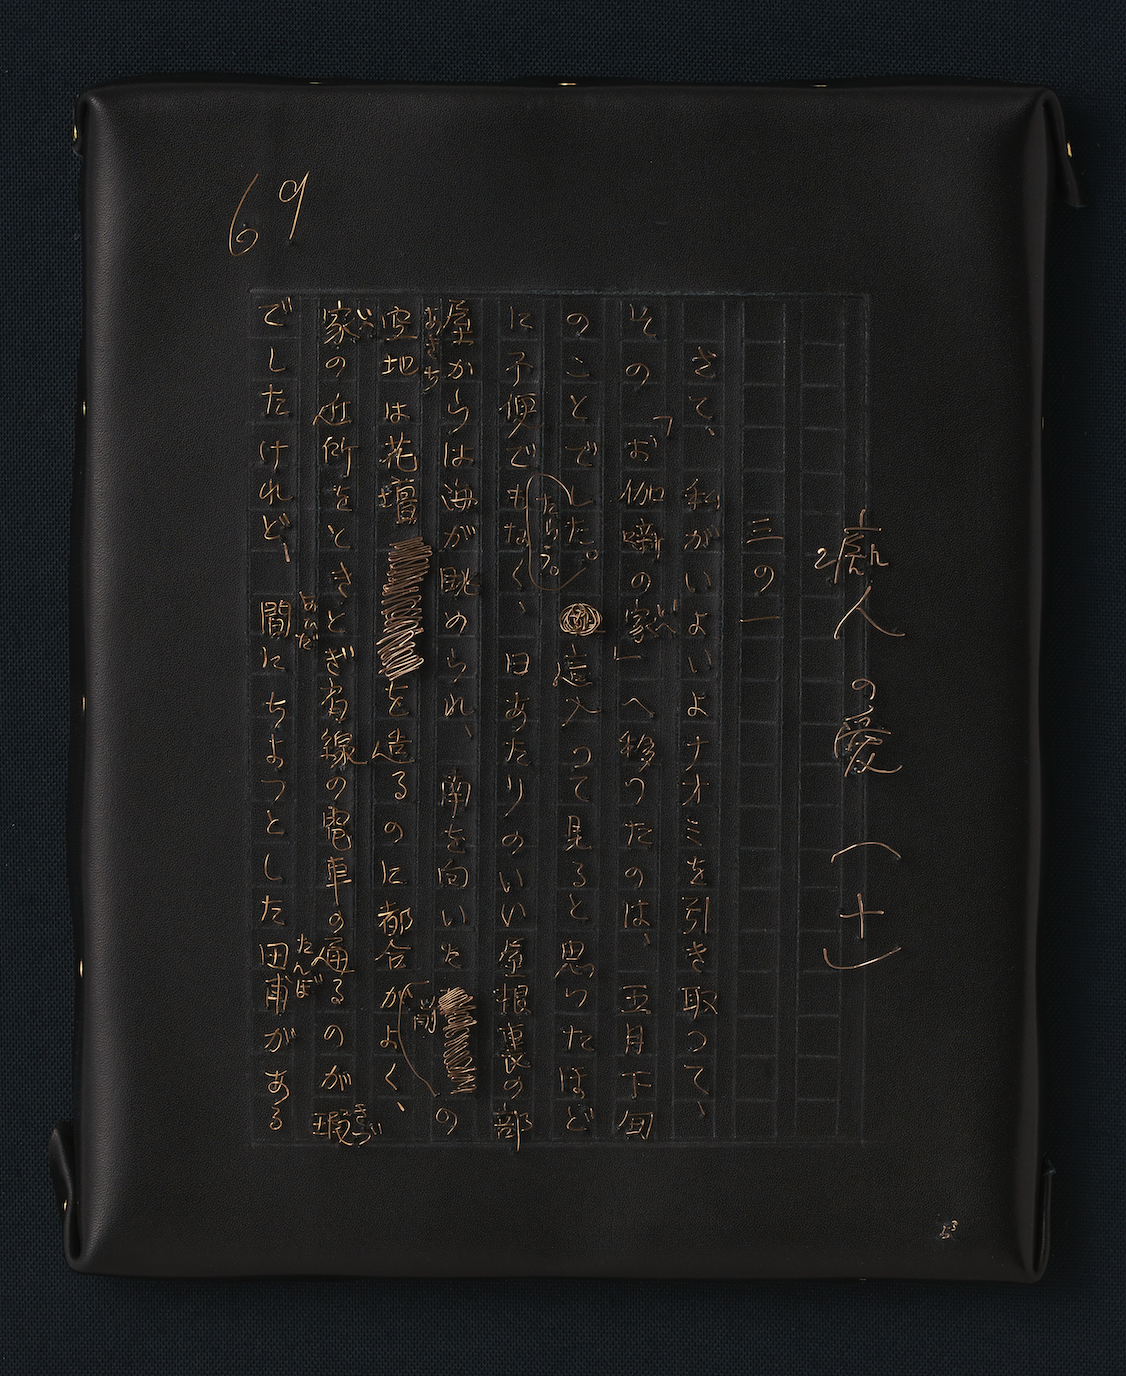 69
癡人の愛（十）
三の一
さて、私がいよいよナオミを引き取つて、
その「お伽噺の家」へ移つたのは、五月下旬
のことでした。這入つて見ると思つたほど
たらう。
に不便でもなく、日あたりのいい屋根裏の部
屋からは海が眺められ、南を向いた前の
あきち
空地は花壇を造るのに都合がよく、
家の近所をときどき省線の電車の通るのが瑕
きず
でしたけれど、間にちよつとした田甫がある
あひだ
たんぼ